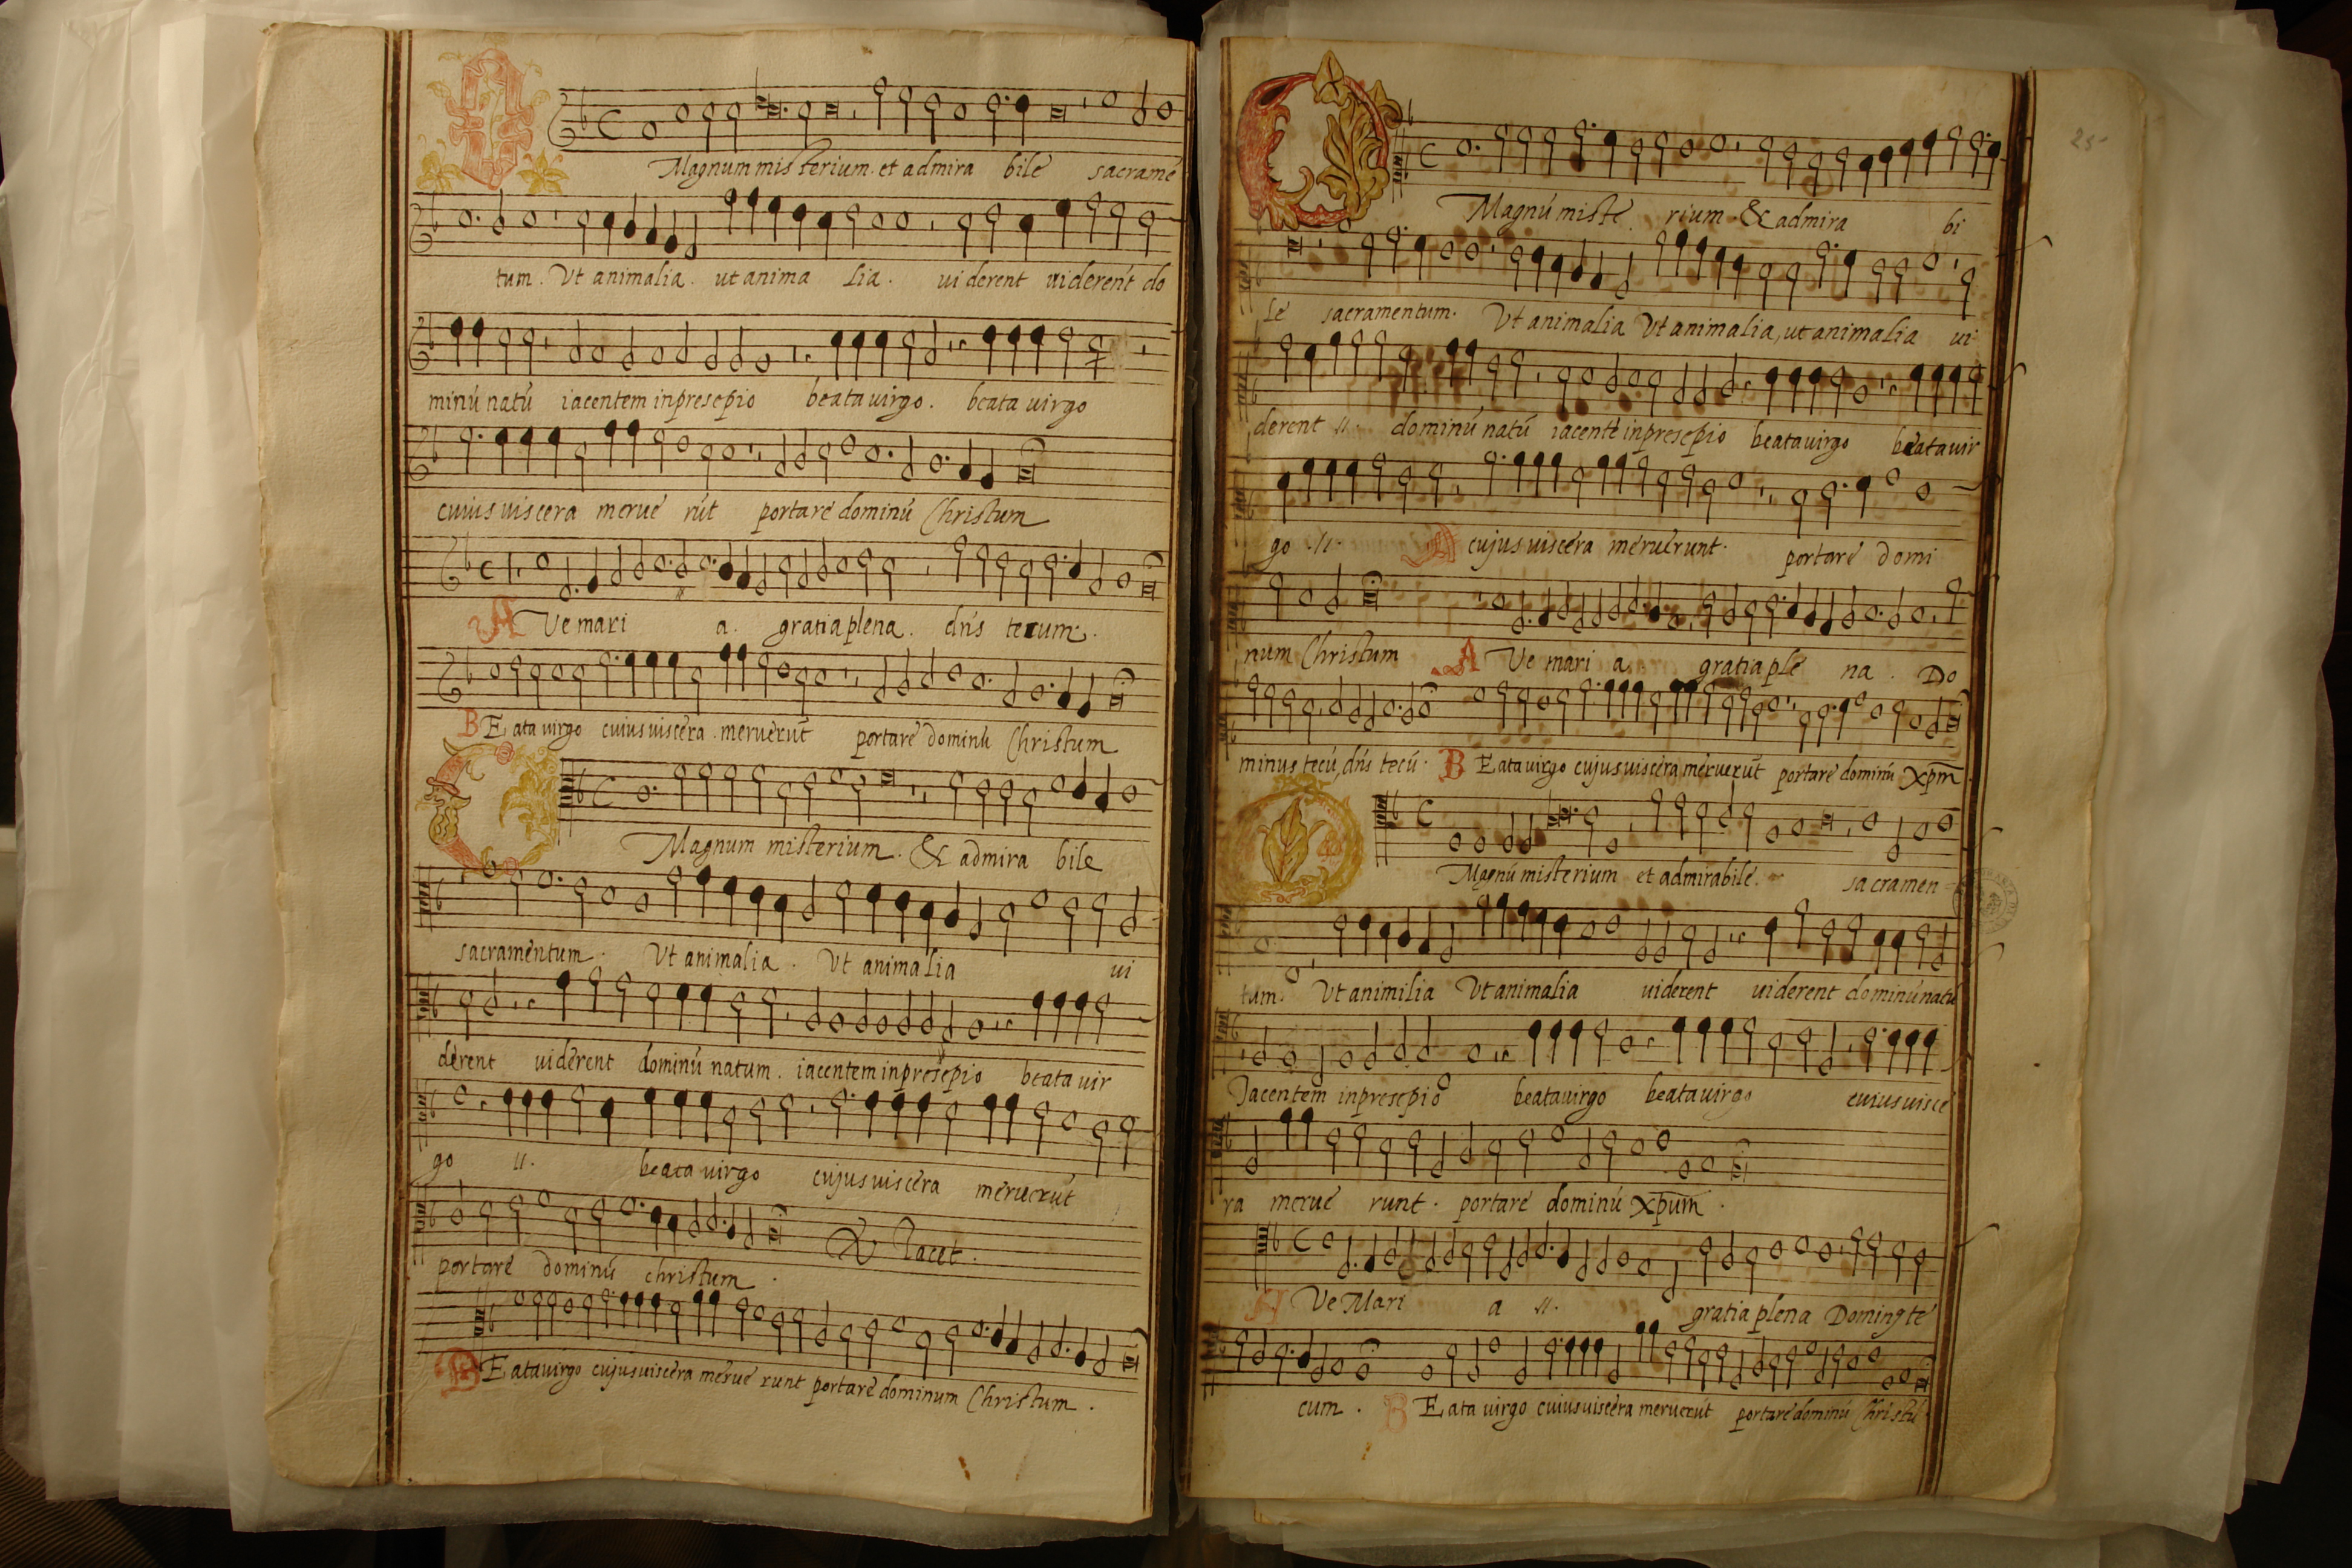 Magnum misterium. et admira bile sacrame
tum. Ut animalia. ut anima lia. uiderent uiderent do
minú natú iacentem inpresepio beata uirgo. beata uirgo
cuius uiscera merue rút portare dominú Christum
A Ve mari a. gratia plena. dn̄s tecum.
BEata uirgo cuius uiscera. meruerut̄ portare dominú Christum
O
Magnum misterium. & admira bile
sacramentum. Ut animalia. Ut animalia ui
derent uiderent dominú natum. iacentem inpresepio beata uir
go //. beata uirgo cujus uiscera meruerút
portare dominú christum. & Tacet.
BEata uirgo cujus uiscera merue runt portare dominum Christum.
25
O
Magnú miste rium & admira bi
le sacramentum. Ut animalia Ut animalia, ut animalia ui
derent //. dominú natú iacente inpresepio beata uirgo beata uir
go //. cujus uiscera meruerunt. portare domi
num Christum A Ve mari a. gratia ple na. Do
minus tecú, dn̄s tecú. BEata uirgo cujus uiscera meruerut̄ portare dominú xp̄m
O
Magnú misterium et admirabile. sacramen
tum. Ut animilia Ut animalia uiderent uiderent dominú natú
Jacentem inpresepio beata uirgo beata uirgo cuius uisce
ra merue runt. portare dominú xpum̄.
A Ve Mari a //. gratia plena Dominꝯ te
cum. BEata uirgo cuius uiscera meruerút portare dominú Christú